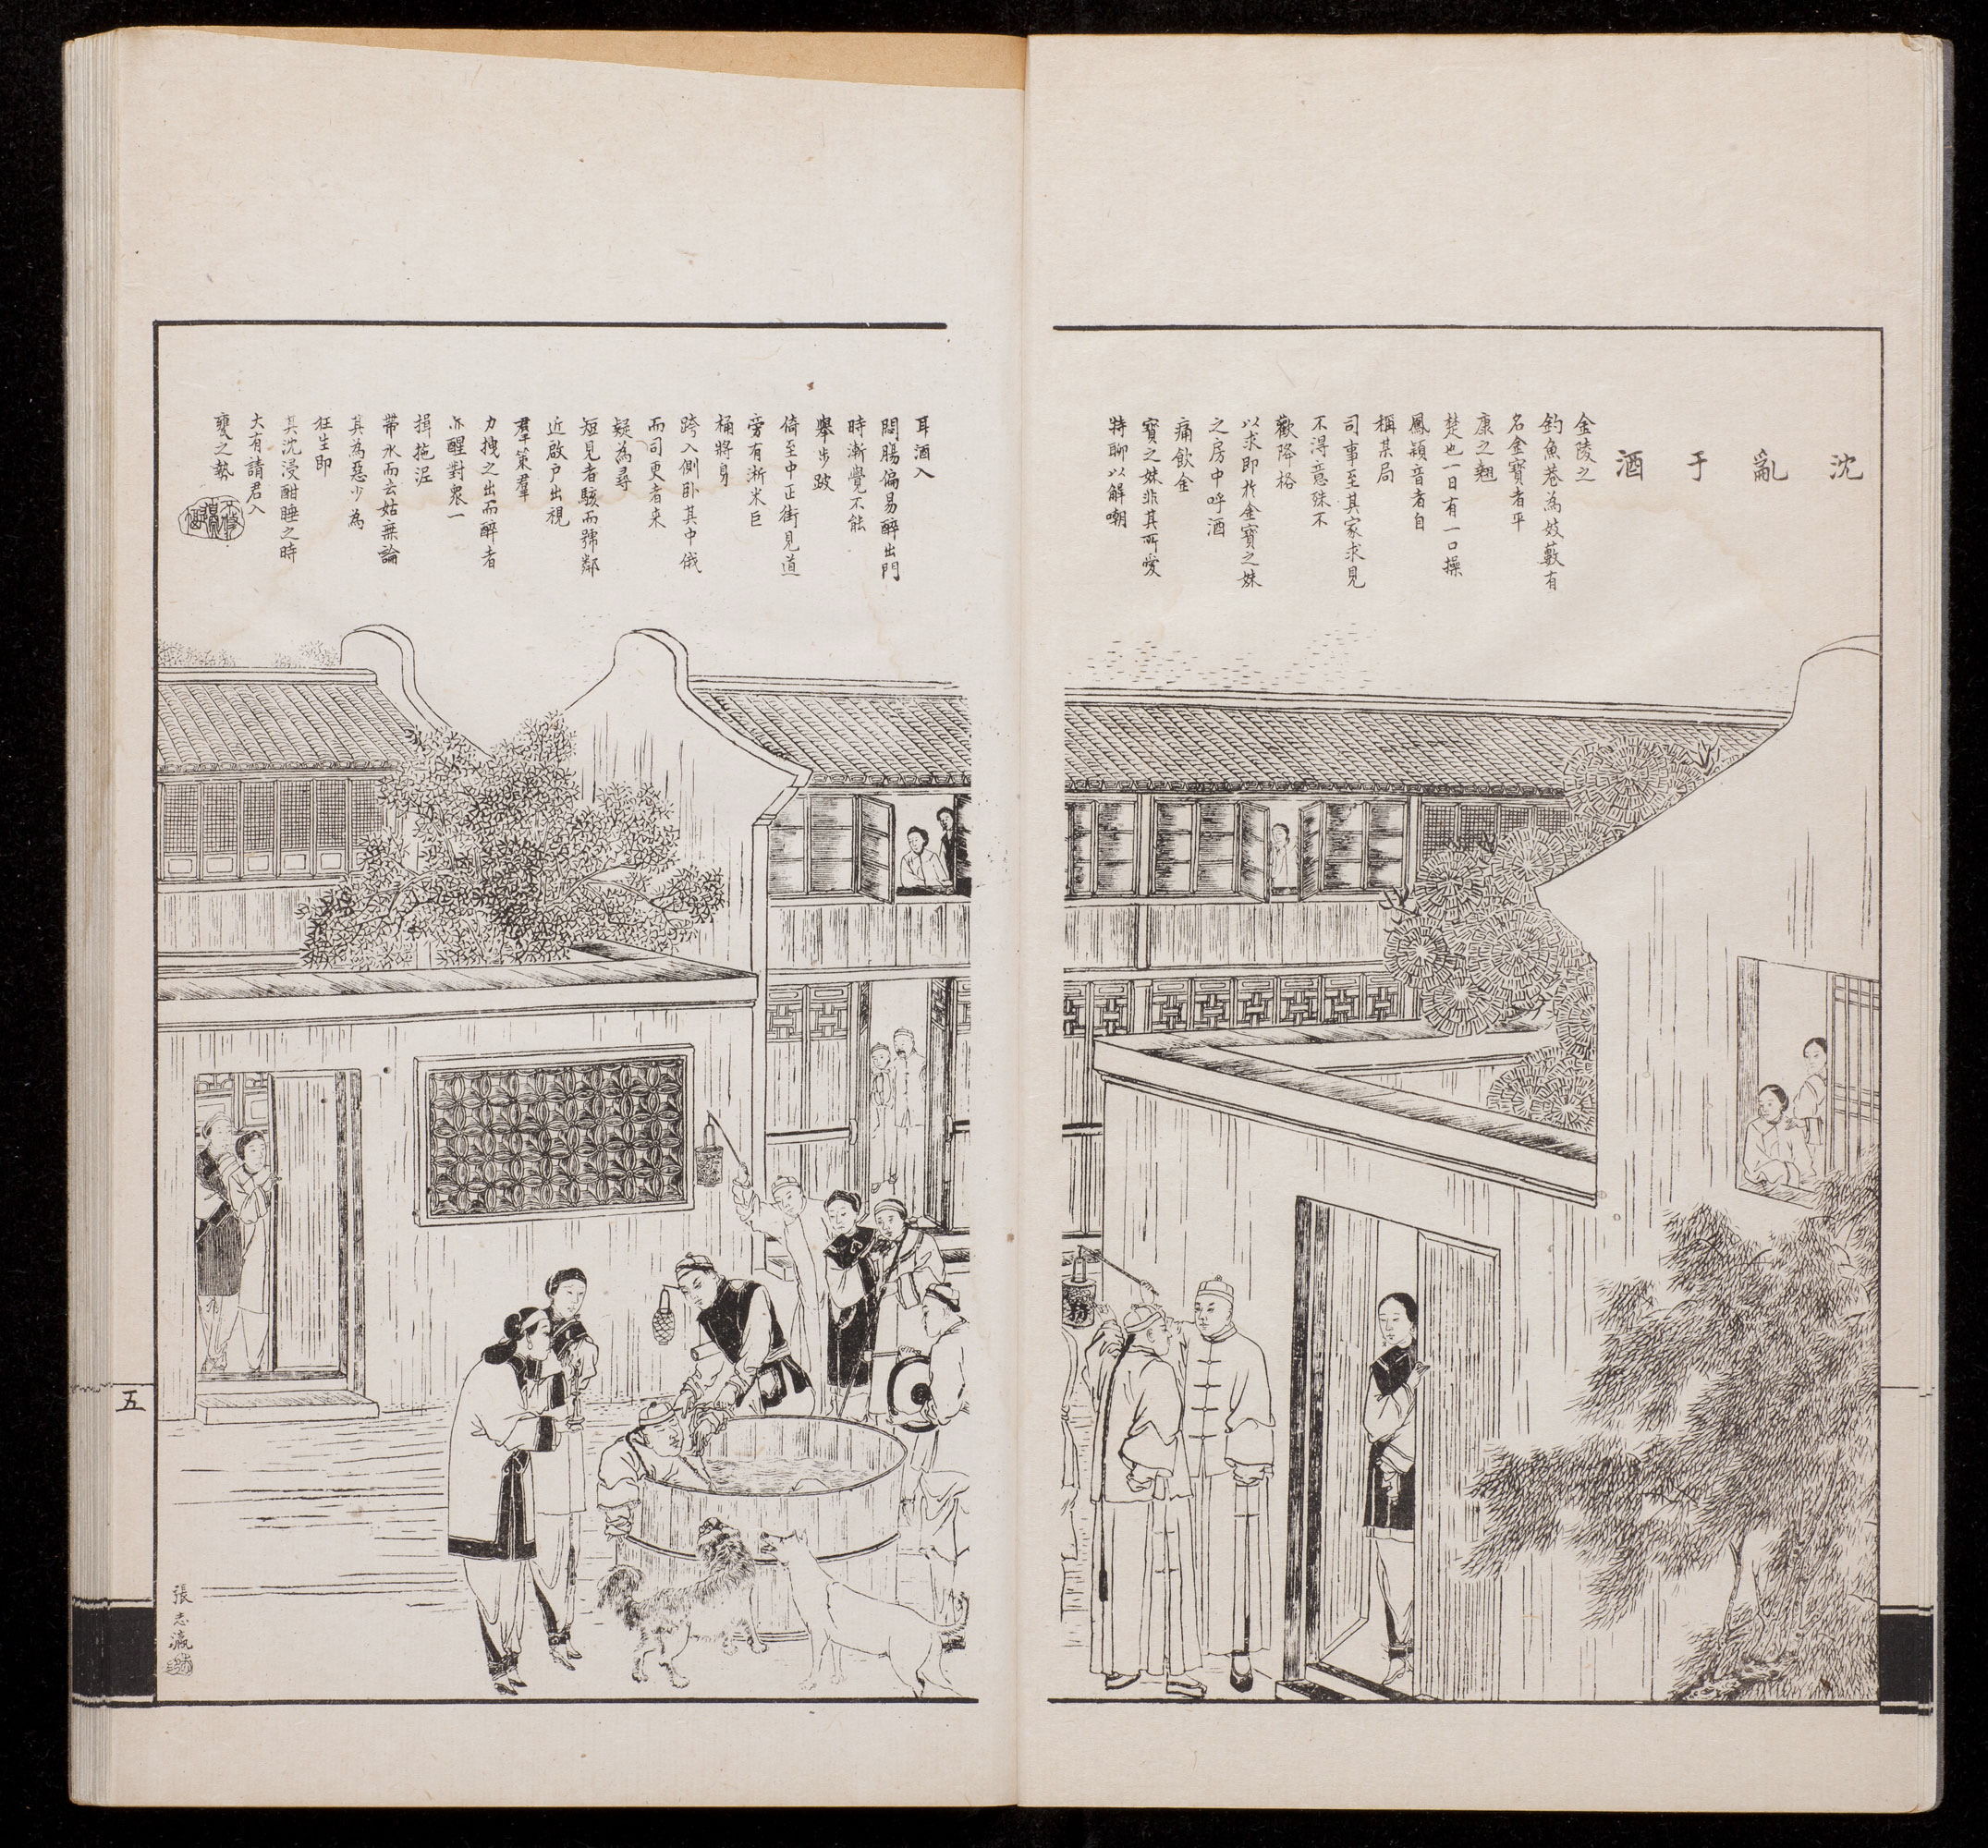 沈亂于酒
金陵之
釣魚巷為妓藪有
名金寶者平
康之翹
楚也一日有一口操
鳳穎音者自
稱某局
司事至其家求見
不得意殊不
歡降格
以求即於金寶之妹
之房中呼酒
痛飲金
寶之妹非其所愛
特聊以解嘲
耳酒入
悶腸偏易醉出門
時漸覺不能
舉步跛
倚至中正街見道
旁有淅米巨
桶將身
跨入側卧其中俄
而司更者来
疑為尋
短見者駭而號鄰
近啟户出視
羣策羣
力拽之出而醉者
亦醒對衆一
揖拖泥
帶水而去姑無論
其為惡少為
狂生即
其沈浸酣睡之時
大有請君入
甕之勢
五
張志瀛